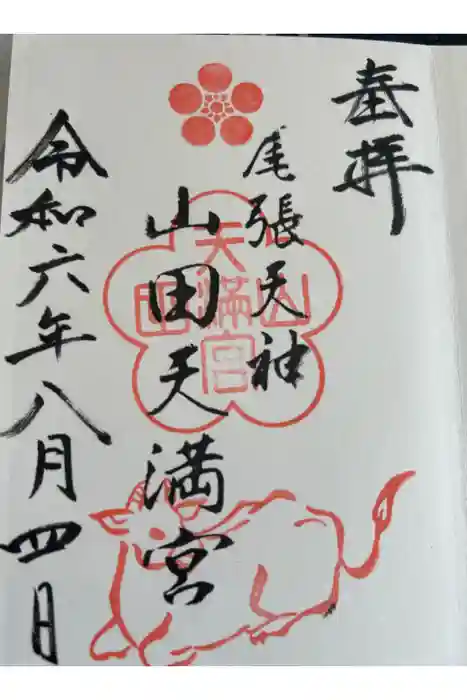 奉拝
尾張天神
山田天満宮
山田
天満宮
令和六年八月四日